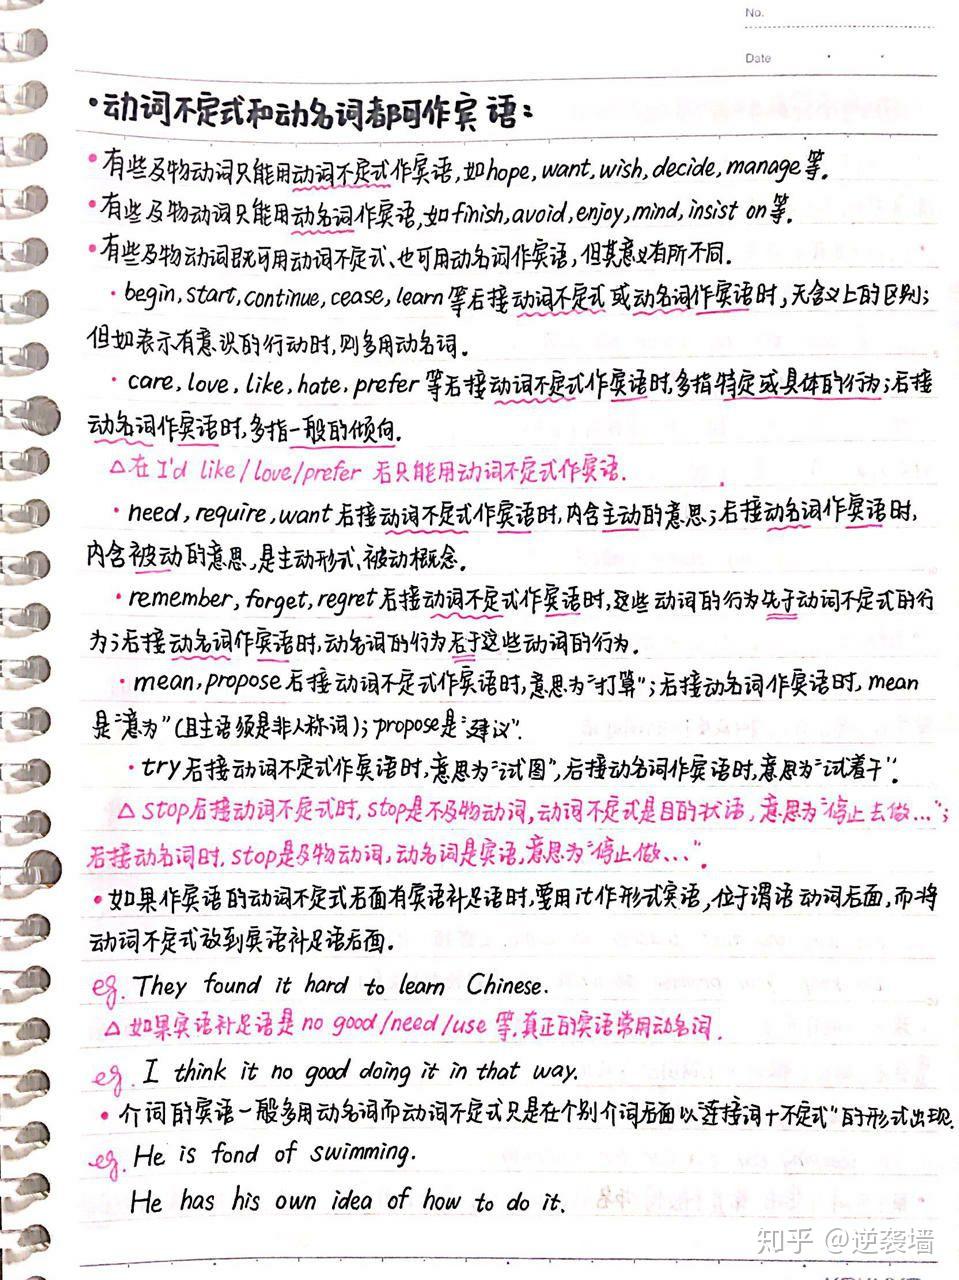 No.
Date
·动词不定式和动名词都可作宾语:
·有些及物动词只能用动词不定式作宾语,如hope,want,wish,decide,manage等.
·有些及物动词只能用动名词作宾语,如finish,avoid,enjoy,mind,insist on等.
·有些及物动词既可用动词不定式、也可用动名词作宾语,但其意义有所不同.
·begin,start,continue,cease,learn等后接动词不定式或动名词作宾语时,无含义上的区别;
但如表示有意识的行动时,则多用动名词。
·care,love,like,hate,prefer等后接动词不定式作宾语时,多指特定或具体的行为;后接
动名词作宾语时,多指一般的倾向.
△在I'd like/love/prefer后只能用动词不定式作宾语.
·need,require,want后接动词不定式作宾语时,内含主动的意思;后接动名词作宾语时,
内含被动的意思,是主动形式、被动概念。
·remember,forget,regret后接动词不定式作宾语时,这些动词的行为先于动词不定式的行
为;后接动名词作宾语时,动名词的行为后于这些动词的行为.
·mean,propose后接动词不定式作宾语时,意思为"打算";后接动名词作宾语时,mean
是"意为"(且主语须是非人称词);propose是"建议".
·try后接动词不定式作宾语时,意思为"试图",后接动名词作宾语时,意思为"试着干".
△stop后接动词不定式时,stop是不及物动词,动词不定式是目的状语,意思为"停止去做...";
后接动名词时,stop是及物动词,动名词是宾语,意思为"停止做...".
·如果作宾语的动词不定式后面有宾语补足语时,要用it作形式宾语,位于谓语动词后面,而将
动词不定式放到宾语补足语后面.
eg. They found it hard to learn Chinese.
△如果宾语补足语是no good/need/use等,真正的宾语常用动名词.
eg. I think it no good doing it in that way.
·介词的宾语一般多用动名词而动词不定式只是在个别介词后面以"连接词+不定式"的形式出现.
eg. He is fond of swimming.
He has his own idea of how to do it.
知乎 @逆袭墙